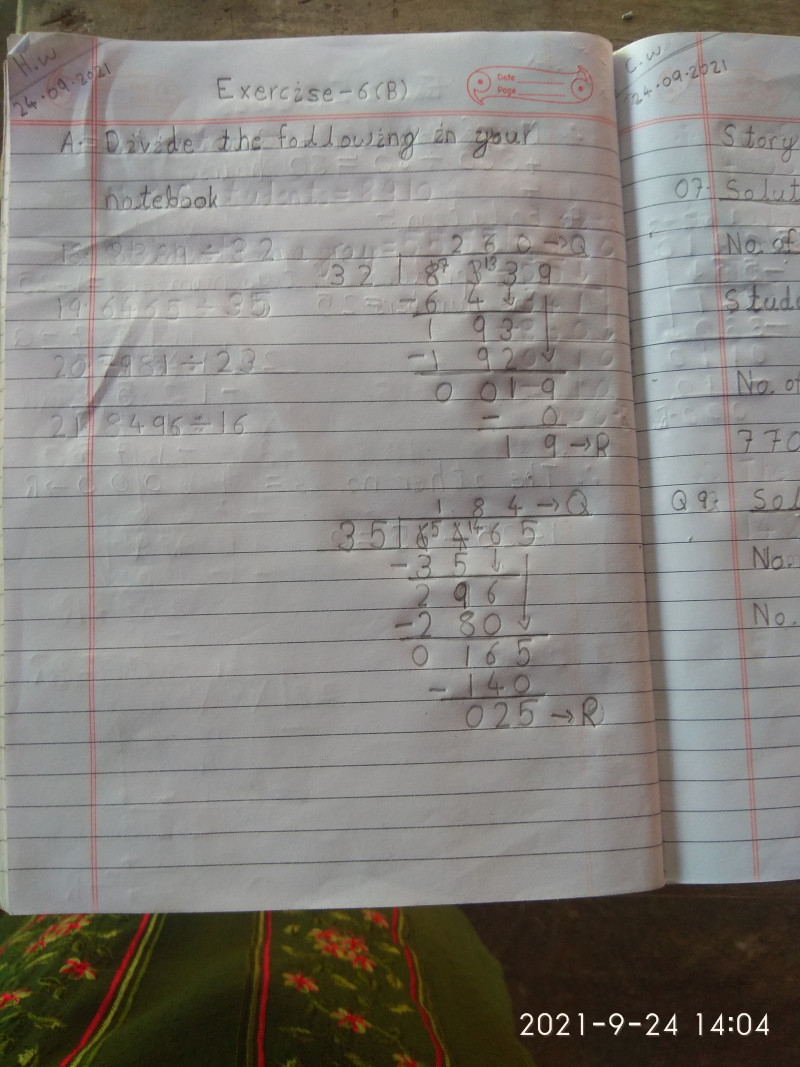 H.W
24.09.2021
Exercise-6(B)
Date
Page
A.= Divide the following in your
notebook
18. 8339÷32
19. 6465÷35
20. 7981÷23
21. 8496÷16
2 6 0 → Q
32 | 8 7 3 13 3 9
-6 4 ↓
1 9 3
-1 9 2 0 ↓
0 0 1 9
- 0
1 9 → R
1 8 4 → Q
35 | 6 5 4 14 6 5
-3 5 ↓
2 9 6
-2 8 0 ↓
0 1 6 5
- 1 4 0
0 2 5 → R
C.W
24.09.2021
Story
07.
No. of
No. of
770
Q 9.
No.
No.
2021-9-24 14:04